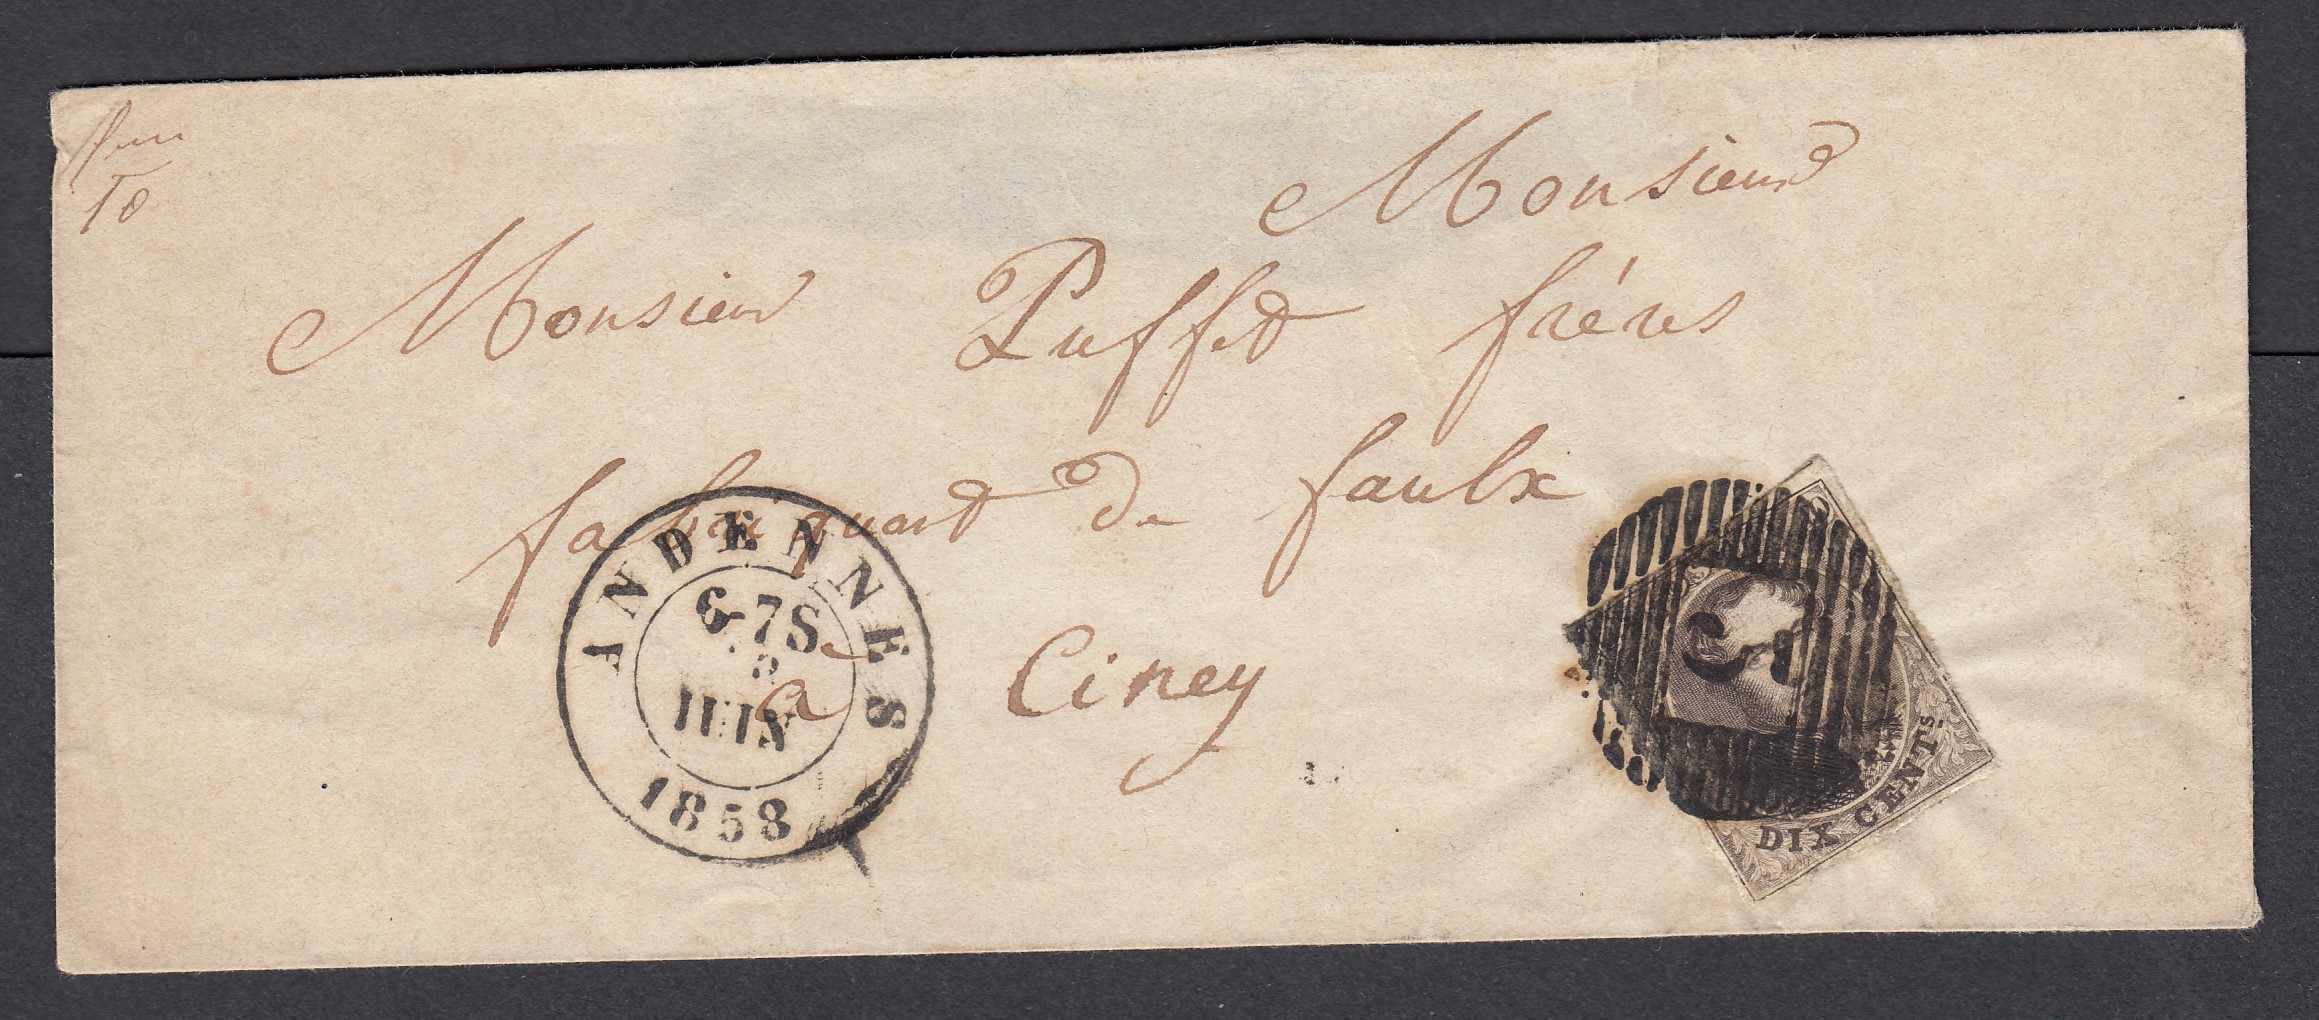 10
Monsieur
Monsieur Puffet fréres
fabriquant de faulx
à Ciney
ANDENNES
6-7S
JUIN
1858
5
DIX CENTS